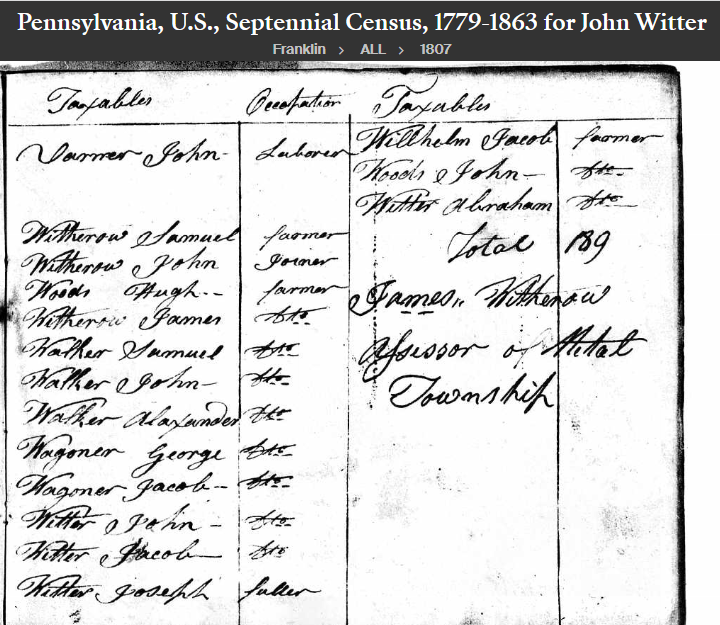 Pennsylvania, U.S., Septennial Census, 1779-1863 for John Witter
Franklin > ALL > 1807
Taxables Occupation
Varner John- Laborer
Witherow Samuel farmer
Witherow John Joiner
Woods Hugh-- farmer
Witherow James dto
Walker Samuel dto
Walker John- dto
Walker Alaxander dto
Wagoner George dto
Wagoner Jacob-- dto
Witter John - dto
Witter Jacob- dto
Witter Joseph fuller
Taxables
Willhelm Jacob farmer
Woods John- dto
Witter Abraham dto
Total 189
James,, Witherow
Assissor of Metal
Township